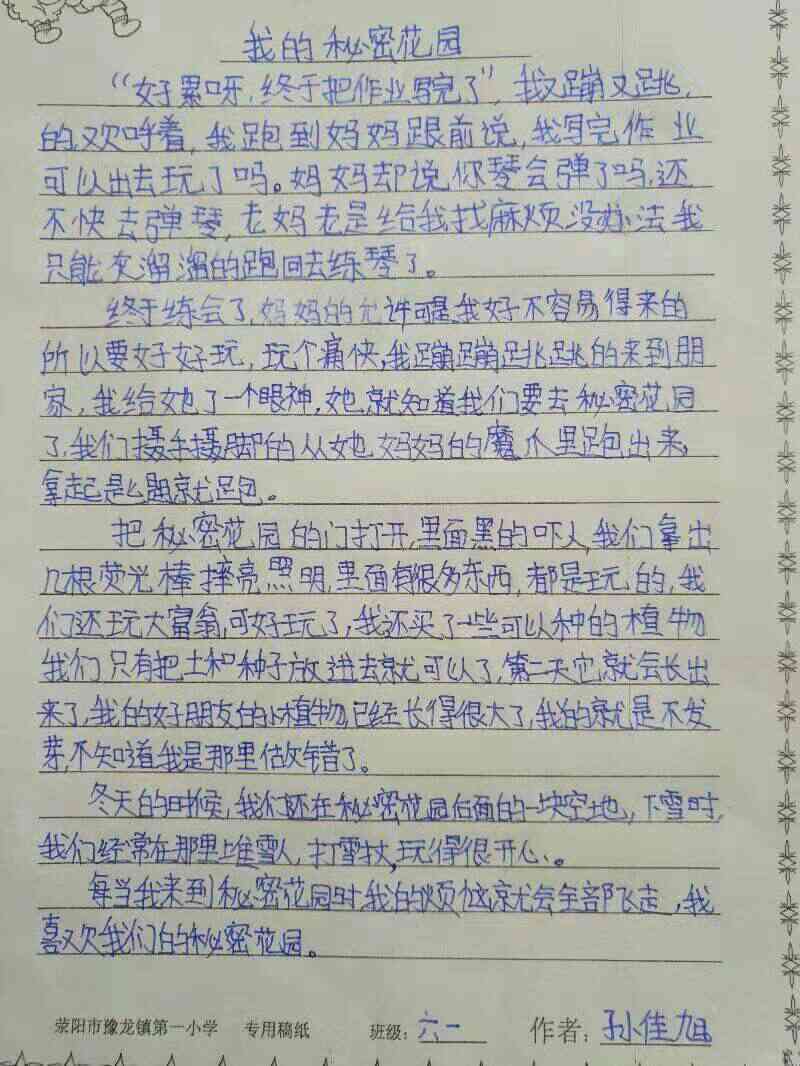 我的秘密花园
“好累呀,终于把作业写完了”,我又蹦又跳,
的欢呼着,我跑到妈妈跟前说,我写完作业
可以出去玩了吗。妈妈却说你琴会弹了吗,还
不快去弹琴,老妈老是给我找麻烦没办法我
只能灰溜溜的跑回去练琴了。
终于练会了,妈妈的允许可是我好不容易得来的
所以要好好玩,玩个痛快,我蹦蹦跳跳的来到朋
家,我给她了一个眼神,她就知道我们要去秘密花园
了,我们摄手摄脚的从她妈妈的魔爪里跑出来,
拿起是匙就跑。
把秘密花园的门打开,里面黑的吓人,我们拿出
几根荧光棒摔亮照明,里面有很多东西,都是玩的,我
们还玩大富翁,可好玩了,我还买了一些可以种的植物
我们只有把土和种子放进去就可以了,第二天它就会长出
来了,我的好朋友的小植物已经长得很大了,我的就是不发
芽,不知道我是那里做错了。
冬天的时候,我们还在秘密花园后面的一块空地,下雪时,
我们经常在那里堆雪人,打雪仗,玩得很开心。
每当我来到秘密花园时,我的烦恼就会全部飞走,我
喜欢我们的秘密花园。
荥阳市豫龙镇第一小学 专用稿纸 班级:六一 作者:孙佳旭